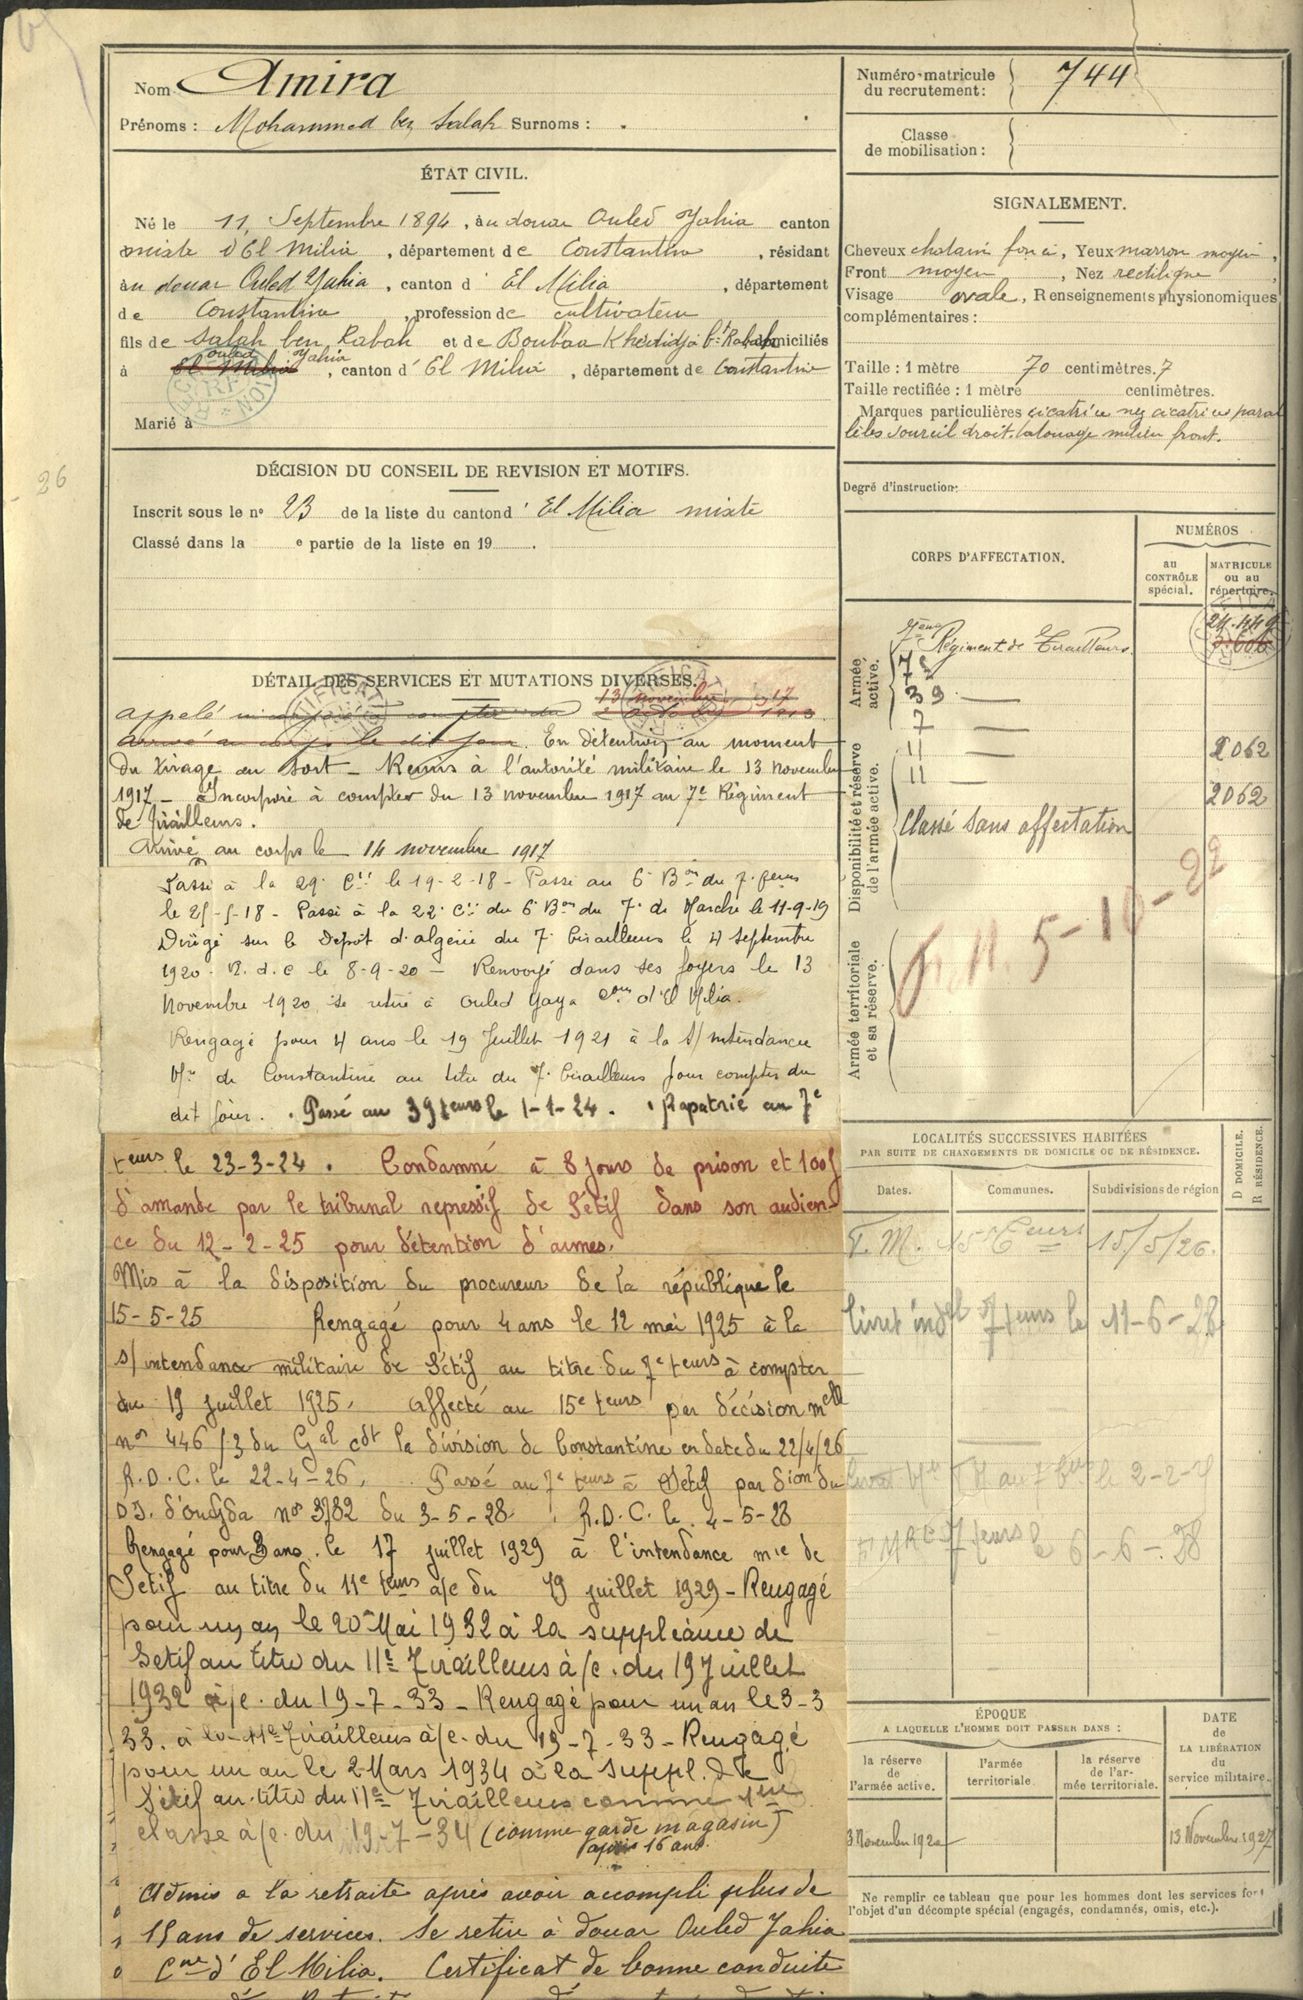 Nom Amira
Prénoms : Mohammed ben Salah Surnoms : .
ÉTAT CIVIL.
Né le 11 Septembre 1894, au douar Ouled Yahia canton
mixte d'El Milia, département de Constantine, résidant
au douar Ouled Yahia, canton d' El Milia, département
de Constantine, profession de cultivateur
fils de Salah ben Rabah et de Boubaa Khedidja bt Rabah domiciliés
ouled Yahia
à El Milia, canton d' El Milia, département de Constantine
Marié à
DÉCISION DU CONSEIL DE REVISION ET MOTIFS.
Inscrit sous le no 23 de la liste du canton d' El Milia mixte
Classé dans la e partie de la liste en 19 .
DÉTAIL DES SERVICES ET MUTATIONS DIVERSES.
13 novembre 1917
appelé à compter du octobre
arrivé au corps le dit jour. En détention au moment
du tirage au sort - Remis à l'autorité militaire le 13 novembre
1917 - Incorporé à compter du 13 novembre 1917 au 7e Régiment
de Tirailleurs.
Arrivé au corps le 14 novembre 1917
Passé à la 29e Cie le 19-2-18 - Passé au 6e Bon du 7e
le 25-5-18 - Passé à la 22e Cie du 6e Bon du 7e de Marche le 11-9-19
Dirigé sur le Dépôt d'algérie du 7e tirailleurs le 4 septembre
1920. R.d.c le 8-9-20 - Renvoyé dans ses foyers le 13
Novembre 1920 se retire à Ouled Yaya Com d'El Milia.
Rengagé pour 4 ans le 19 Juillet 1921 à la S/intendance
Mre de Constantine au titre du 7e tirailleurs pour compter du
dit jour. . Passé au 39 teurs le 1-1-24 . . Rapatrié au 7e
teurs le 23-3-24 . Condamné à 8 jours de prison et 100f
d'amande par le tribunal repressif de Sétif dans son audien-
ce du 12-2-25 pour détention d'armes.
Mis à la disposition du procureur de la république le
15-5-25 Rengagé pour 4 ans le 12 mai 1925 à la
s/intendance militaire de Sétif au titre du 7e teurs à compter
du 19 juillet 1925. Affecté au 15e teurs par décision melle
nos 446/3 du Gal cdt la division de Constantine en date du 22/4/26
R.D.C. le 22-4-26. Passé au 7e teurs à Sétif par dion du
D.I. d'oudjda nos 3782 du 3-5-28. R.D.C. le 4-5-28
Rengagé pour 3 ans le 17 juillet 1929 à l'intendance mre de
Setif au titre du 11e teurs a/c du 19 juillet 1929 - Rengagé
pour un an le 20 Mai 1932 à la suppléance de
Setif au titre du 11e Tirailleurs à/c. du 19 Juillet
1932 à/c. du 19-7-33 - Rengagé pour un an le 3-3
33. à la 11e Tirailleurs à/c. du 19-7-33 - Rengagé
pour un an le 2 Mars 1934 à la suppl. de
Sétif au titre du 11e Tirailleurs comme 1ere
classe à/c. du 19-7-34 (comme garde magasin)
après 16 ans.
Admis a la retraite après avoir accompli plus de
15 ans de services. Se retire à douar Ouled Yahia
Cne d'El Milia. Certificat de bonne conduite
Numéro-matricule
du recrutement : 744
Classe
de mobilisation :
SIGNALEMENT.
Cheveux chatain foncé, Yeux marron moyen,
Front moyen, Nez rectiligne,
Visage ovale, Renseignements physionomiques
complémentaires :
Taille : 1 mètre 70 centimètres. 7
Taille rectifiée : 1 mètre centimètres.
Marques particulières cicatrice nez cicatrices paral
lèles sourcil droit. tatouage milieu front.
Degré d'instruction :
CORPS D'AFFECTATION.
NUMÉROS
au
CONTRÔLE
spécial.
MATRICULE
ou au
répertoire.
Armée
active.
7eme Régiment de Tirailleurs.
24.449
3.606
7e
39 —
7 —
Disponibilité et réserve
de l'armée active.
11 — 2062
11 —
2062
Classé sans affectation
Armée territoriale
et sa réserve.
5-10-22
LOCALITÉS SUCCESSIVES HABITÉES
PAR SUITE DE CHANGEMENTS DE DOMICILE OU DE RÉSIDENCE.
D DOMICILE.
R RÉSIDENCE.
Dates.
Communes.
Subdivisions de région
F.M. 15e teurs 15/5/26.
livret indel 7 teurs le 11-6-28
7 teurs le 6-6-28
ÉPOQUE
A LAQUELLE L'HOMME DOIT PASSER DANS :
DATE
de
LA LIBÉRATION
du
service militaire.
la réserve
de
l'armée active.
l'armée
territoriale
la réserve
de l'ar-
mée territoriale.
13 Novembre 1920
13 Novembre 1927
Ne remplir ce tableau que pour les hommes dont les services font
l'objet d'un décompte spécial (engagés, condamnés, omis, etc.).
26